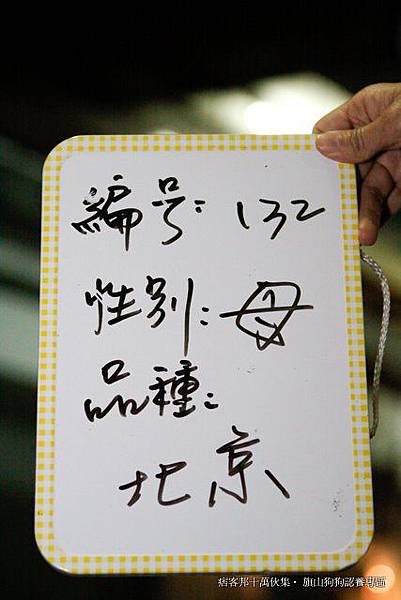 編号: 132
性别: 母
品種:
北京
痞客邦十萬伙集 · 旗山狗狗認養專區